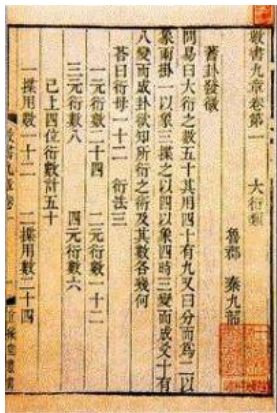 數書九章卷第一　大衍類
魯郡　秦九韶
蓍卦發微
問易曰大衍之數五十其用四十有九又曰分而為二以
象兩掛一以象三揲之以四以象四時三變而成爻十有
八變而成卦欲知所衍之術及其數各幾何
荅曰衍母一十二　衍法三
一元衍數二十四　二元衍數一十二
三元衍數八　四元衍數六
已上四位衍數計五十
一揲用數一十二　二揲用數二十四